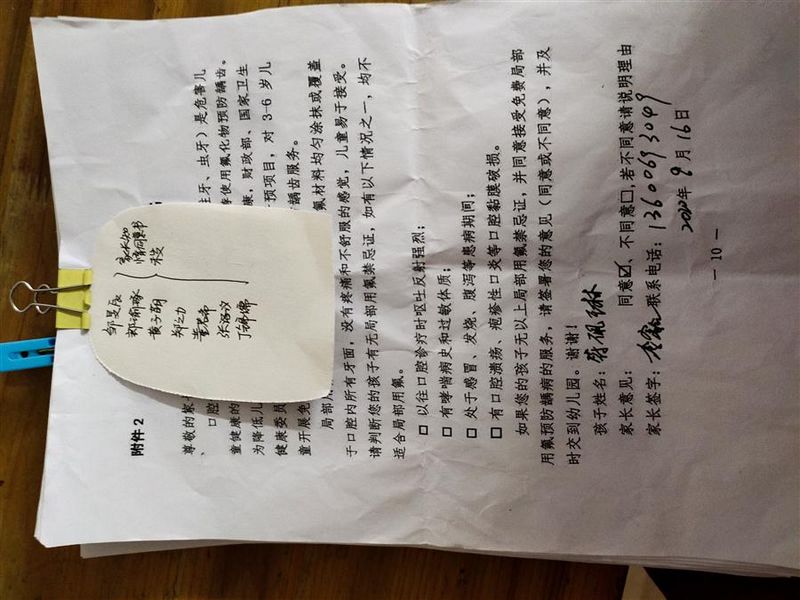 附件2
尊敬的家
、口腔 牲牙、虫牙）是危害儿
童健康的 使用氟化物预防龋齿。
为降低儿 康，财政部、国家卫生
健康委员 预项目，对 3-6 岁儿
童开展免 龋齿服务。
局部用 氟材料均匀涂抹或覆盖
于口腔内所有牙面，没有疼痛和不舒服的感觉，儿童易于接受。
请判断您的孩子有无局部用氟禁忌证，如有以下情况之一，均不
适合局部用氟。
□ 以往口腔诊疗时呕吐反射强烈；
□ 有哮喘病史和过敏体质；
□ 处于感冒、发烧、腹泻等患病期间；
□ 有口腔溃疡、疱疹性口炎等口腔黏膜破损。
如果您的孩子无以上局部用氟禁忌证，并同意接受免费局部
用氟预防龋病的服务，请签署您的意见（同意或不同意），并及
时交到幼儿园。谢谢！
孩子姓名：
家长意见： 同意☑、不同意□，若不同意请说明理由
家长签字： 联系电话：13600693049
年9月16日
— 10 —
邹旻辰
郑瑜琢
黄子萌
家长知
情同意书
未交